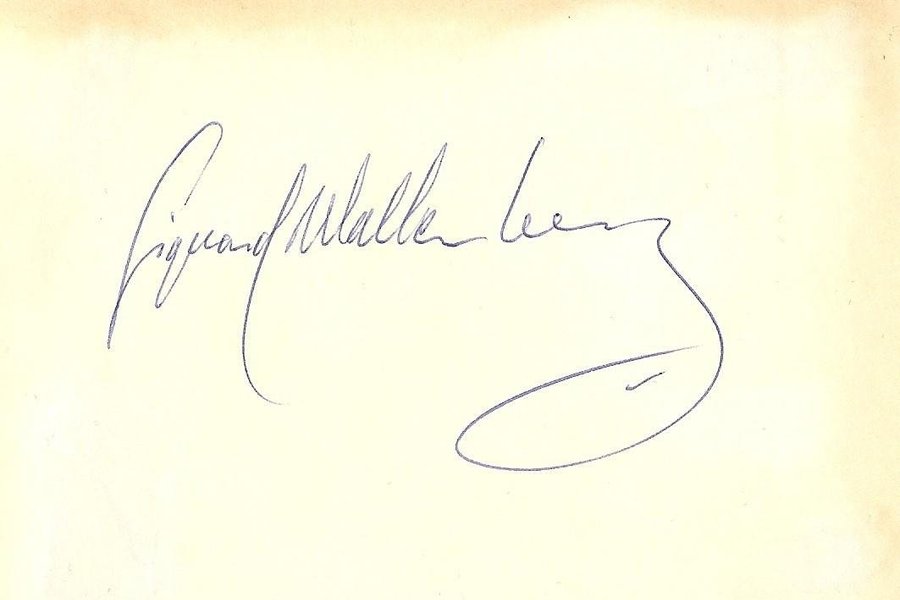 Sigvard Wallenberg